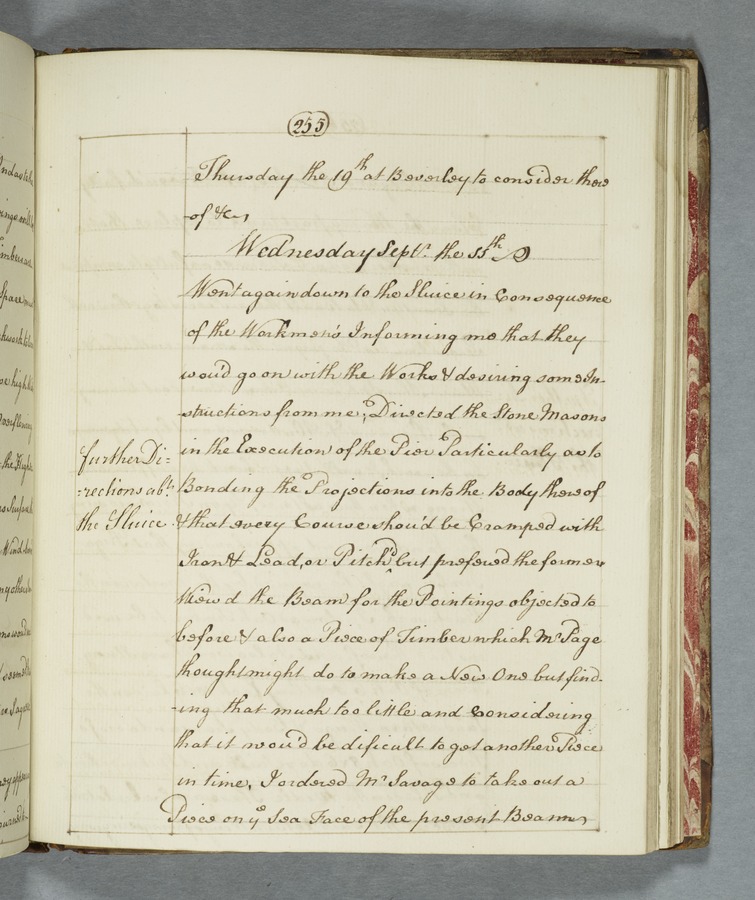 255
Thursday the 19th at Beverley to consider there
of &c
Wednesday Septr. the 55th
Went again down to the Sluice in Consequence
of the Workmen's Informing me that they
wou'd go on with the Works & desiring some In-
structions from me; Directed the Stone Masons
in the Execution of the Pier Particularly as to
Bonding the Projections into the Body thereof
& that every Course shou'd be Cramped with
Iron & Lead, or Pitch'd, but prefered the former
View'd the Beam for the Pointings objected to
before & also a Piece of Timber which Mr Page
thought might do to make a New One but find-
ing that much too little and Considering
that it wou'd be dificult to get another Piece
in time, I ordered Mr Savage to take out a
Piece on ye Sea Face of the present Beam
further Di=
=rections abt.
the Sluice